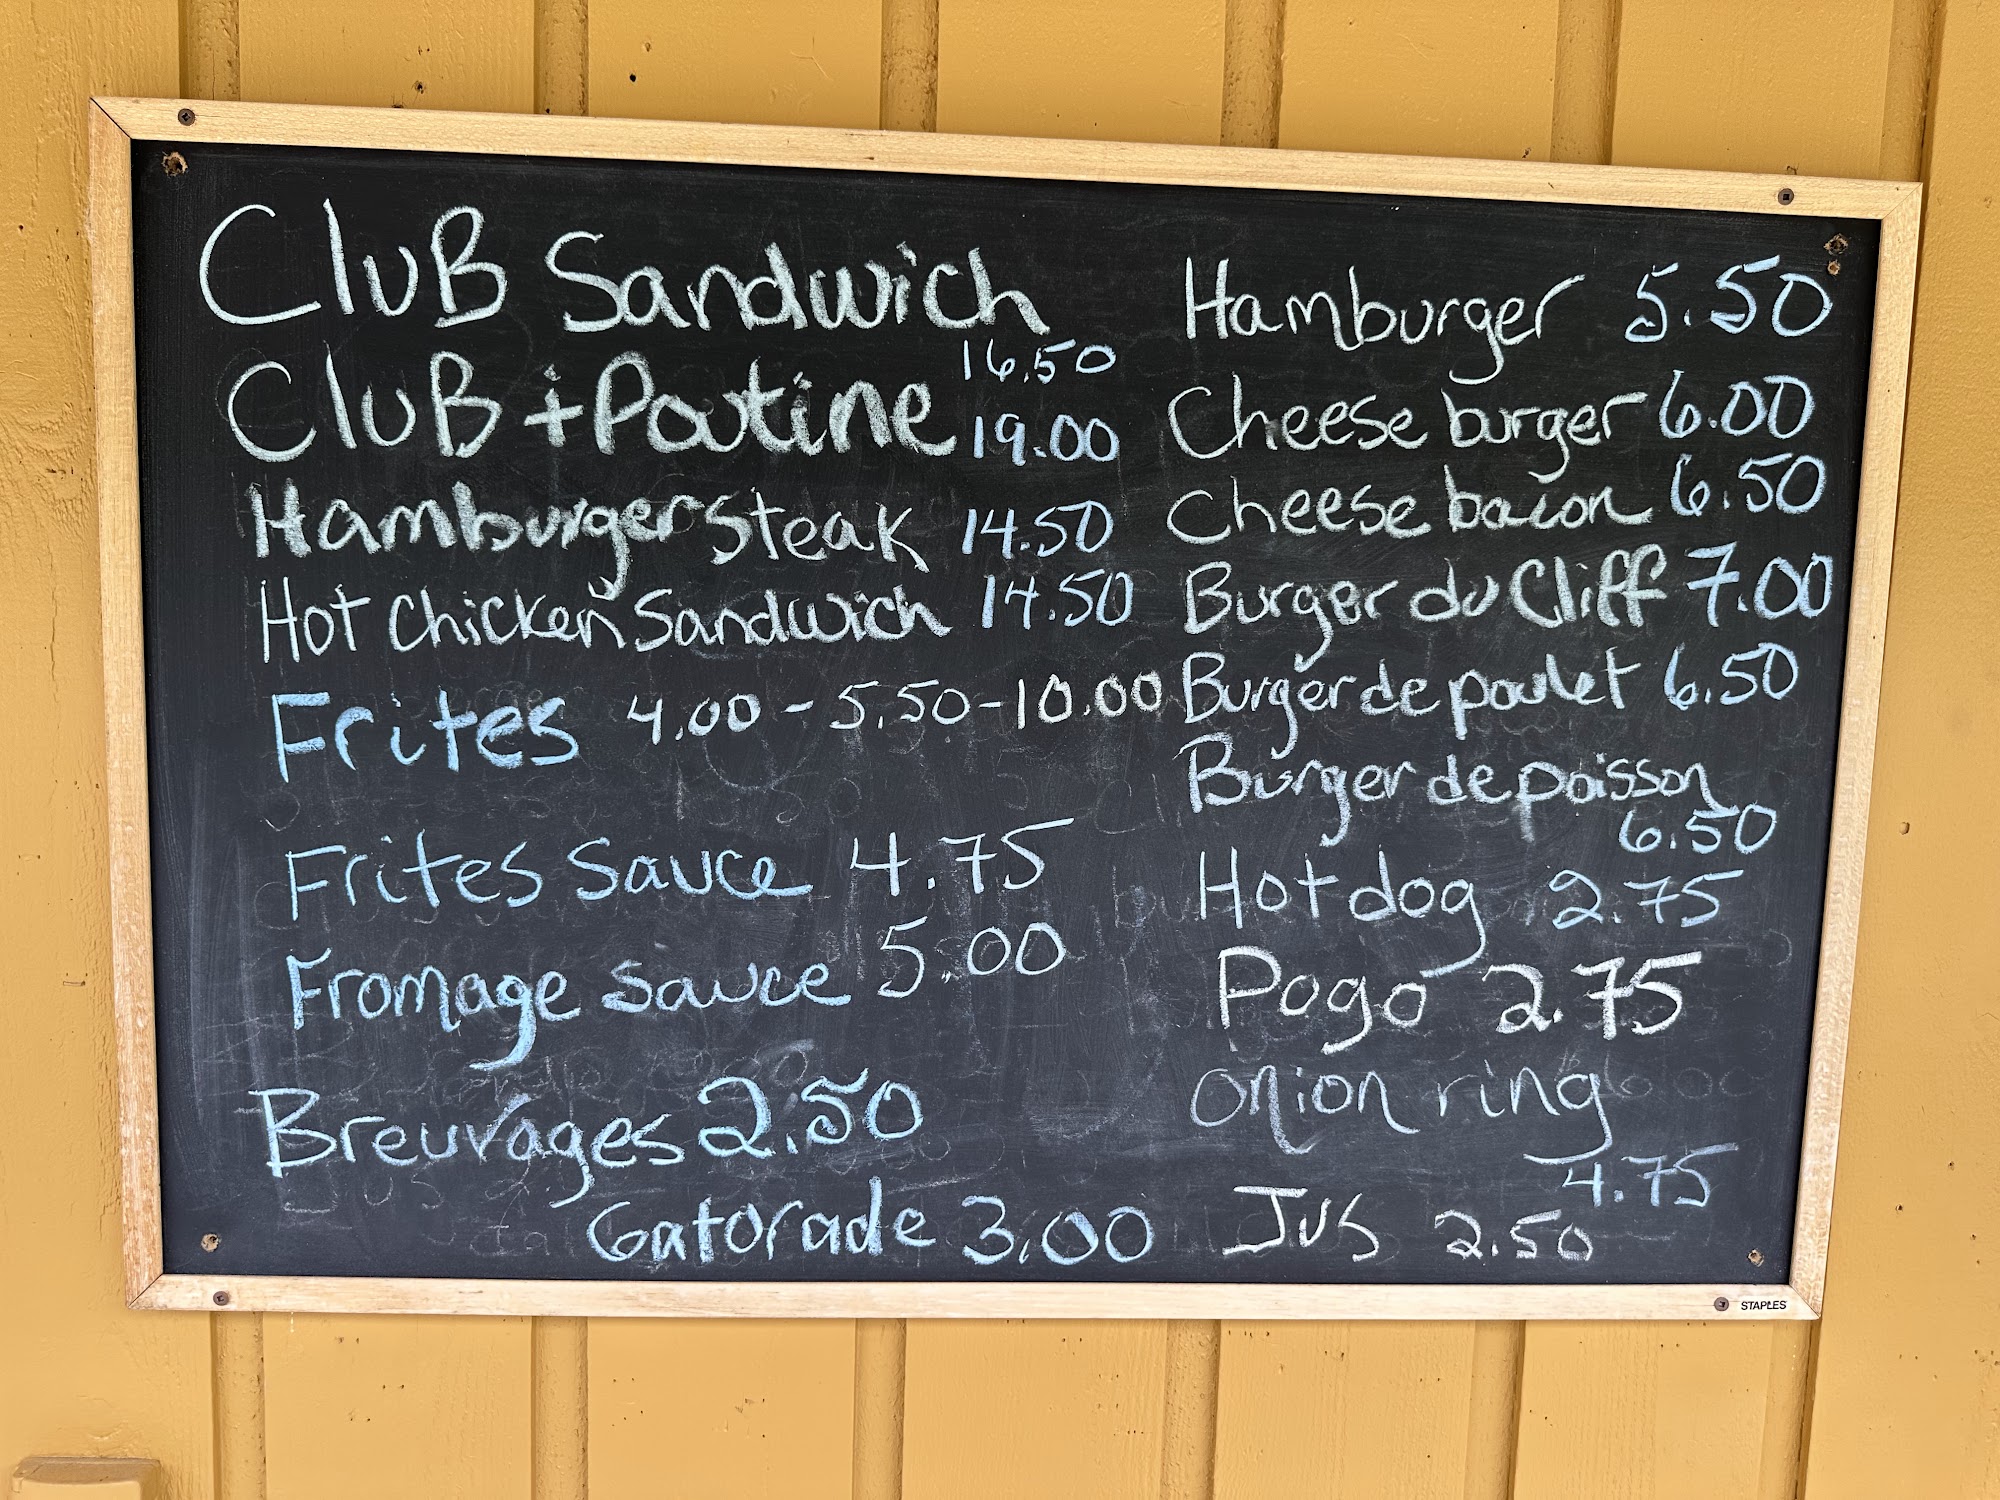 Club Sandwich
16.50
Club + Poutine 19.00
Hamburger Steak 14.50
Hot chicken Sandwich 14.50
Frites 4.00 - 5.50 - 10.00
Frites Sauce 4.75
Fromage Sauce 5.00
Breuvages 2.50
Gatorade 3.00
Hamburger 5.50
Cheese burger 6.00
Cheese bacon 6.50
Burger du Cliff 7.00
Burger de poulet 6.50
Burger de poisson
6.50
Hot dog 2.75
Pogo 2.75
onion ring
4.75
Jus 2.50
STAPLES